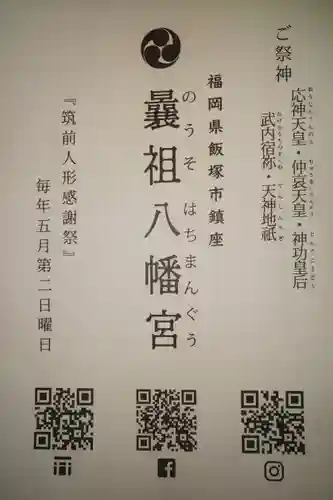 ご祭神
応神天皇・仲哀天皇・神功皇后
武内宿祢・天神地祇
福岡県飯塚市鎮座
曩祖八幡宮
のうそはちまんぐう
『筑前人形感謝祭』
毎年五月第二日曜日